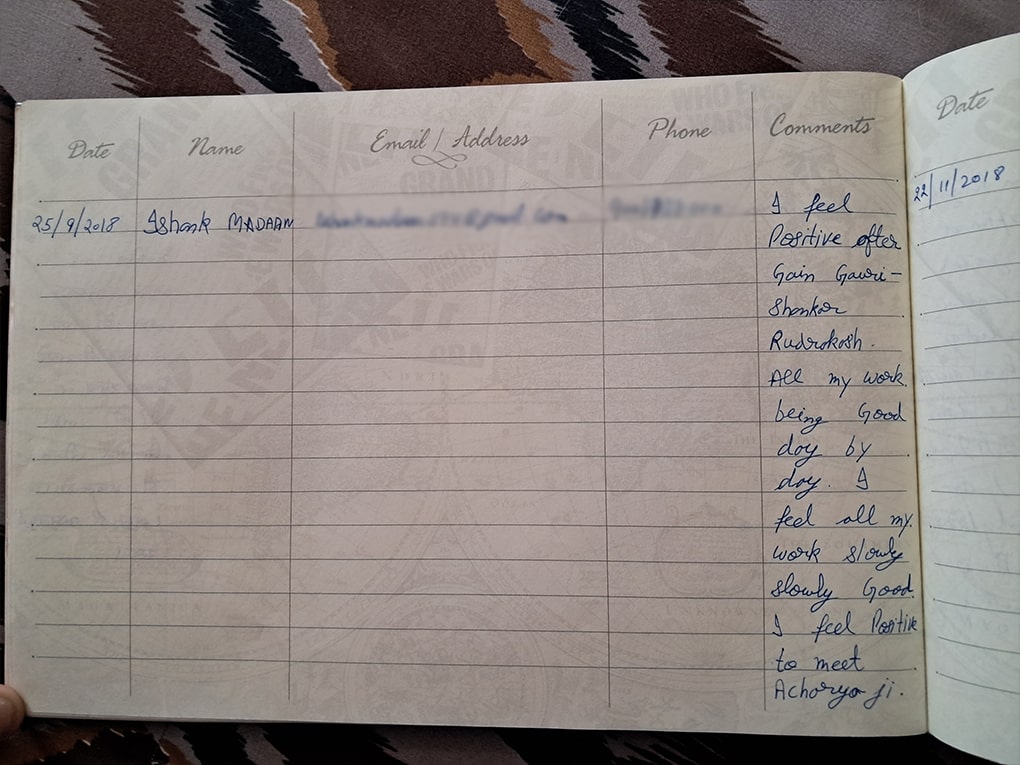 Date Name Email / Address Phone Comments
25/9/2018 Ishank MADAAN I feel
Positive after
Gain Gauri-
Shankar
Rudrakash.
All my work
being Good
day by
day. I
feel all my
work slowly
slowly Good.
I feel Positive
to meet
Acharya ji.
Date
22/11/2018